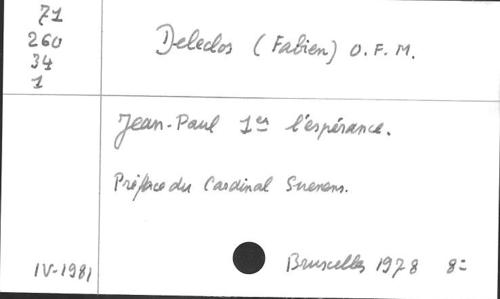 71
260
34
1
Deleclos (Fabien) O.F.M.
Jean-Paul 1er l'espérance.
Préface du Cardinal Suenens.
IV-1981
Bruxelles 1978 8=